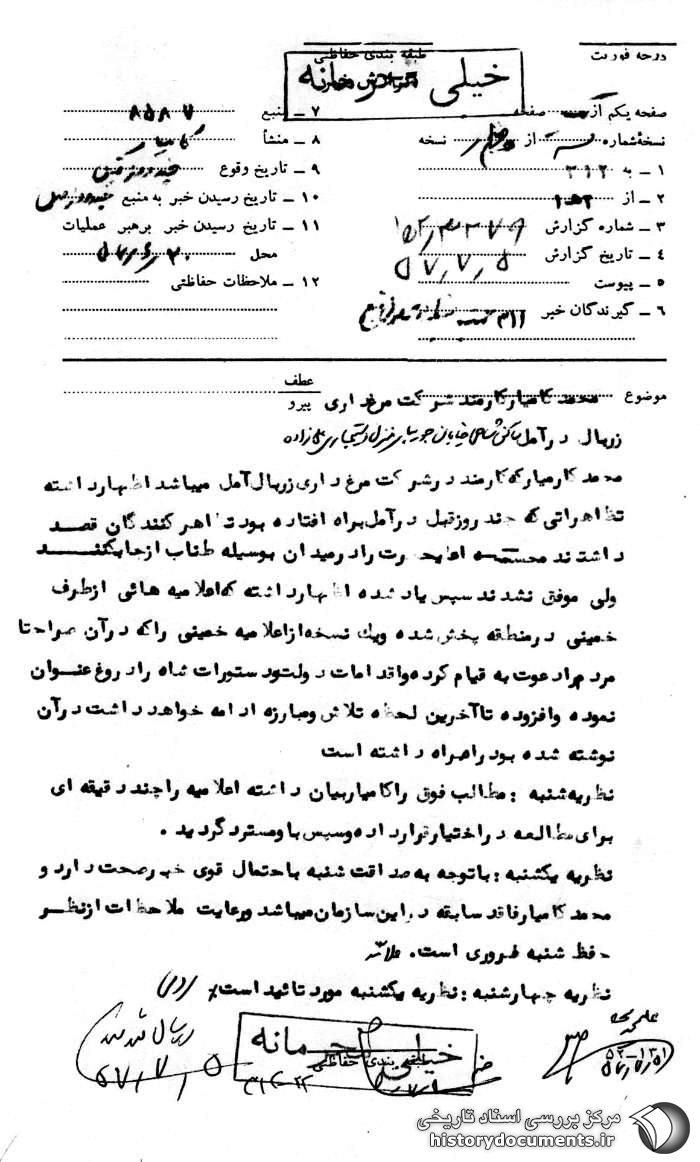 درجه فوریت
طبقه بندی حفاظتی
خیلی محرمانه
گزارش خبر
صفحه یکم از صفحه
نسخهٔ شماره از نسخه
۱ ــ به ۳۱۲
۲ ــ از
۳ ــ شماره گزارش
۴ ــ تاریخ گزارش ۵۷٫۷٫۵
۵ ــ پیوست
۶ ــ گیرندگان خبر
۷ ــ منبع ۸۵۸۷
۸ ــ منشأ کامیار
۹ ــ تاریخ وقوع چند روز قبل
۱۰ ــ تاریخ رسیدن خبر به منبع
۱۱ ــ تاریخ رسیدن خبر برهبر عملیات
محل ۵۷٫۶٫۳۰
۱۲ ــ ملاحظات حفاظتی
موضوع محمد کامیار کارمند شرکت مرغداری
عطف
پیرو
زربال در آمل ساکن
محمد کارمیار که کارمند در شرکت مرغ داری زربال آمل میباشد اظهار داشته
تظاهراتی که چند روز قبل در آمل براه افتاده بود تظاهر کنندگان قصد
داشتند مجسمه اعلیحضرت را در میدان بوسیله طناب از جا بکنند
ولی موفق نشدند سپس یاد شده اظهار داشته که اعلامیه هائی از طرف
خمینی در منطقه پخش شده ویك نسخه از اعلامیه خمینی را که در آن صراحتا
مردم را دعوت به قیام کرده و اقدامات دولت و دستورات شاه را دروغ عنوان
نموده وافزوده تا آخرین لحظه تلاش و مبارزه ادامه خواهد داشت در آن
نوشته شده بود را همراه داشته است
نظریه شنبه : مطالب فوق را کامیار بیان داشته اعلامیه را چند دقیقه ای
برای مطالعه در اختیار قرار داده و سپس باو مسترد گردید .
نظریه یکشنبه : با توجه به صداقت شنبه باحتمال قوی خبر صحت دارد و
محمد کامیار فاقد سابقه در این سازمان میباشد و رعایت ملاحظات از نظر
حفظ شنبه ضروری است.
نظریه چهارشنبه : نظریه یکشنبه مورد تائید است٪
ارسال شد
۵۷٫۷٫۵
خیلی محرمانه
طبقه بندی حفاظتی
مرکز بررسی اسناد تاریخی
historydocuments.ir